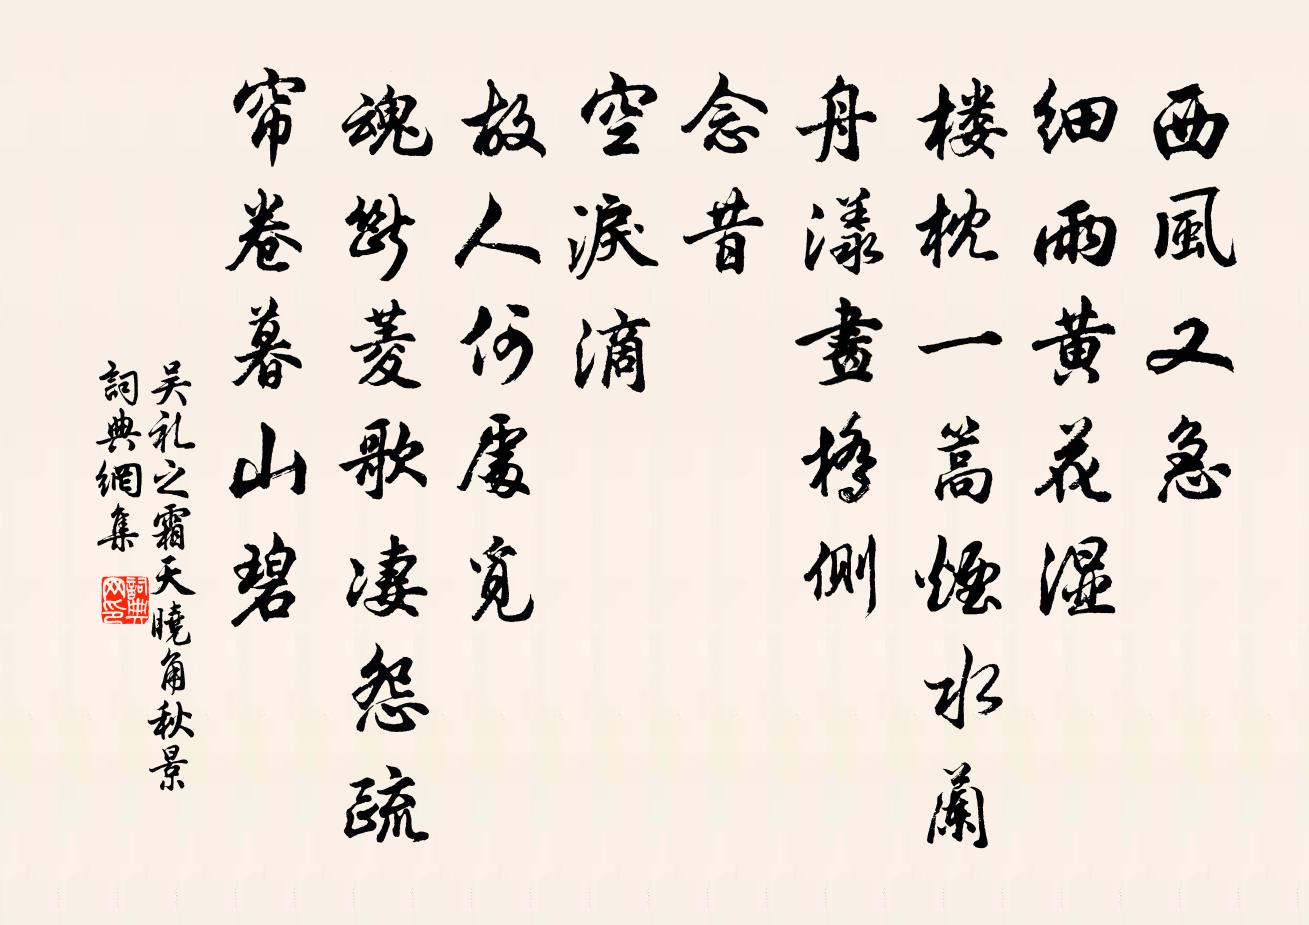 西風又急
细雨黄花湿
楼枕一篙煙水蘭
舟漾畫橋側
念昔
空淚滴
故人何處覓
魂斷菱歌凄怨疏
帘卷暮山碧
吴礼之霜天曉角秋景
詞典網集
詞典網印